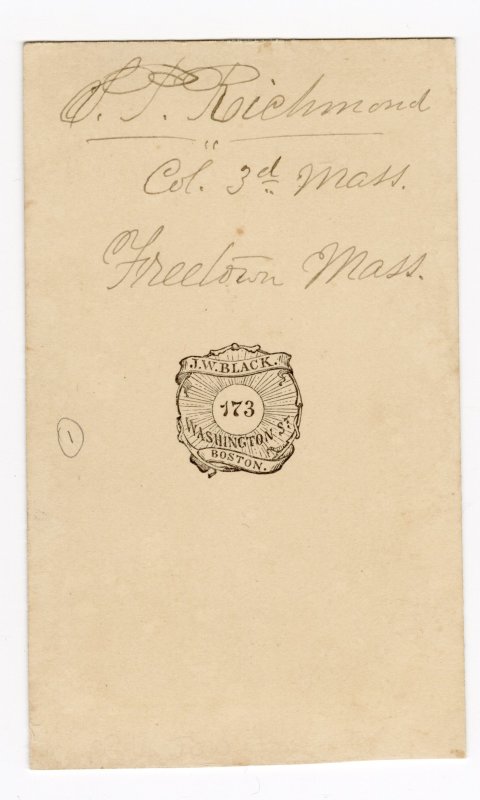 S. P. Richmond
"
Col. 3d Mass.
Freetown Mass.
J.W. BLACK.
173
WASHINGTON ST.
BOSTON.
1